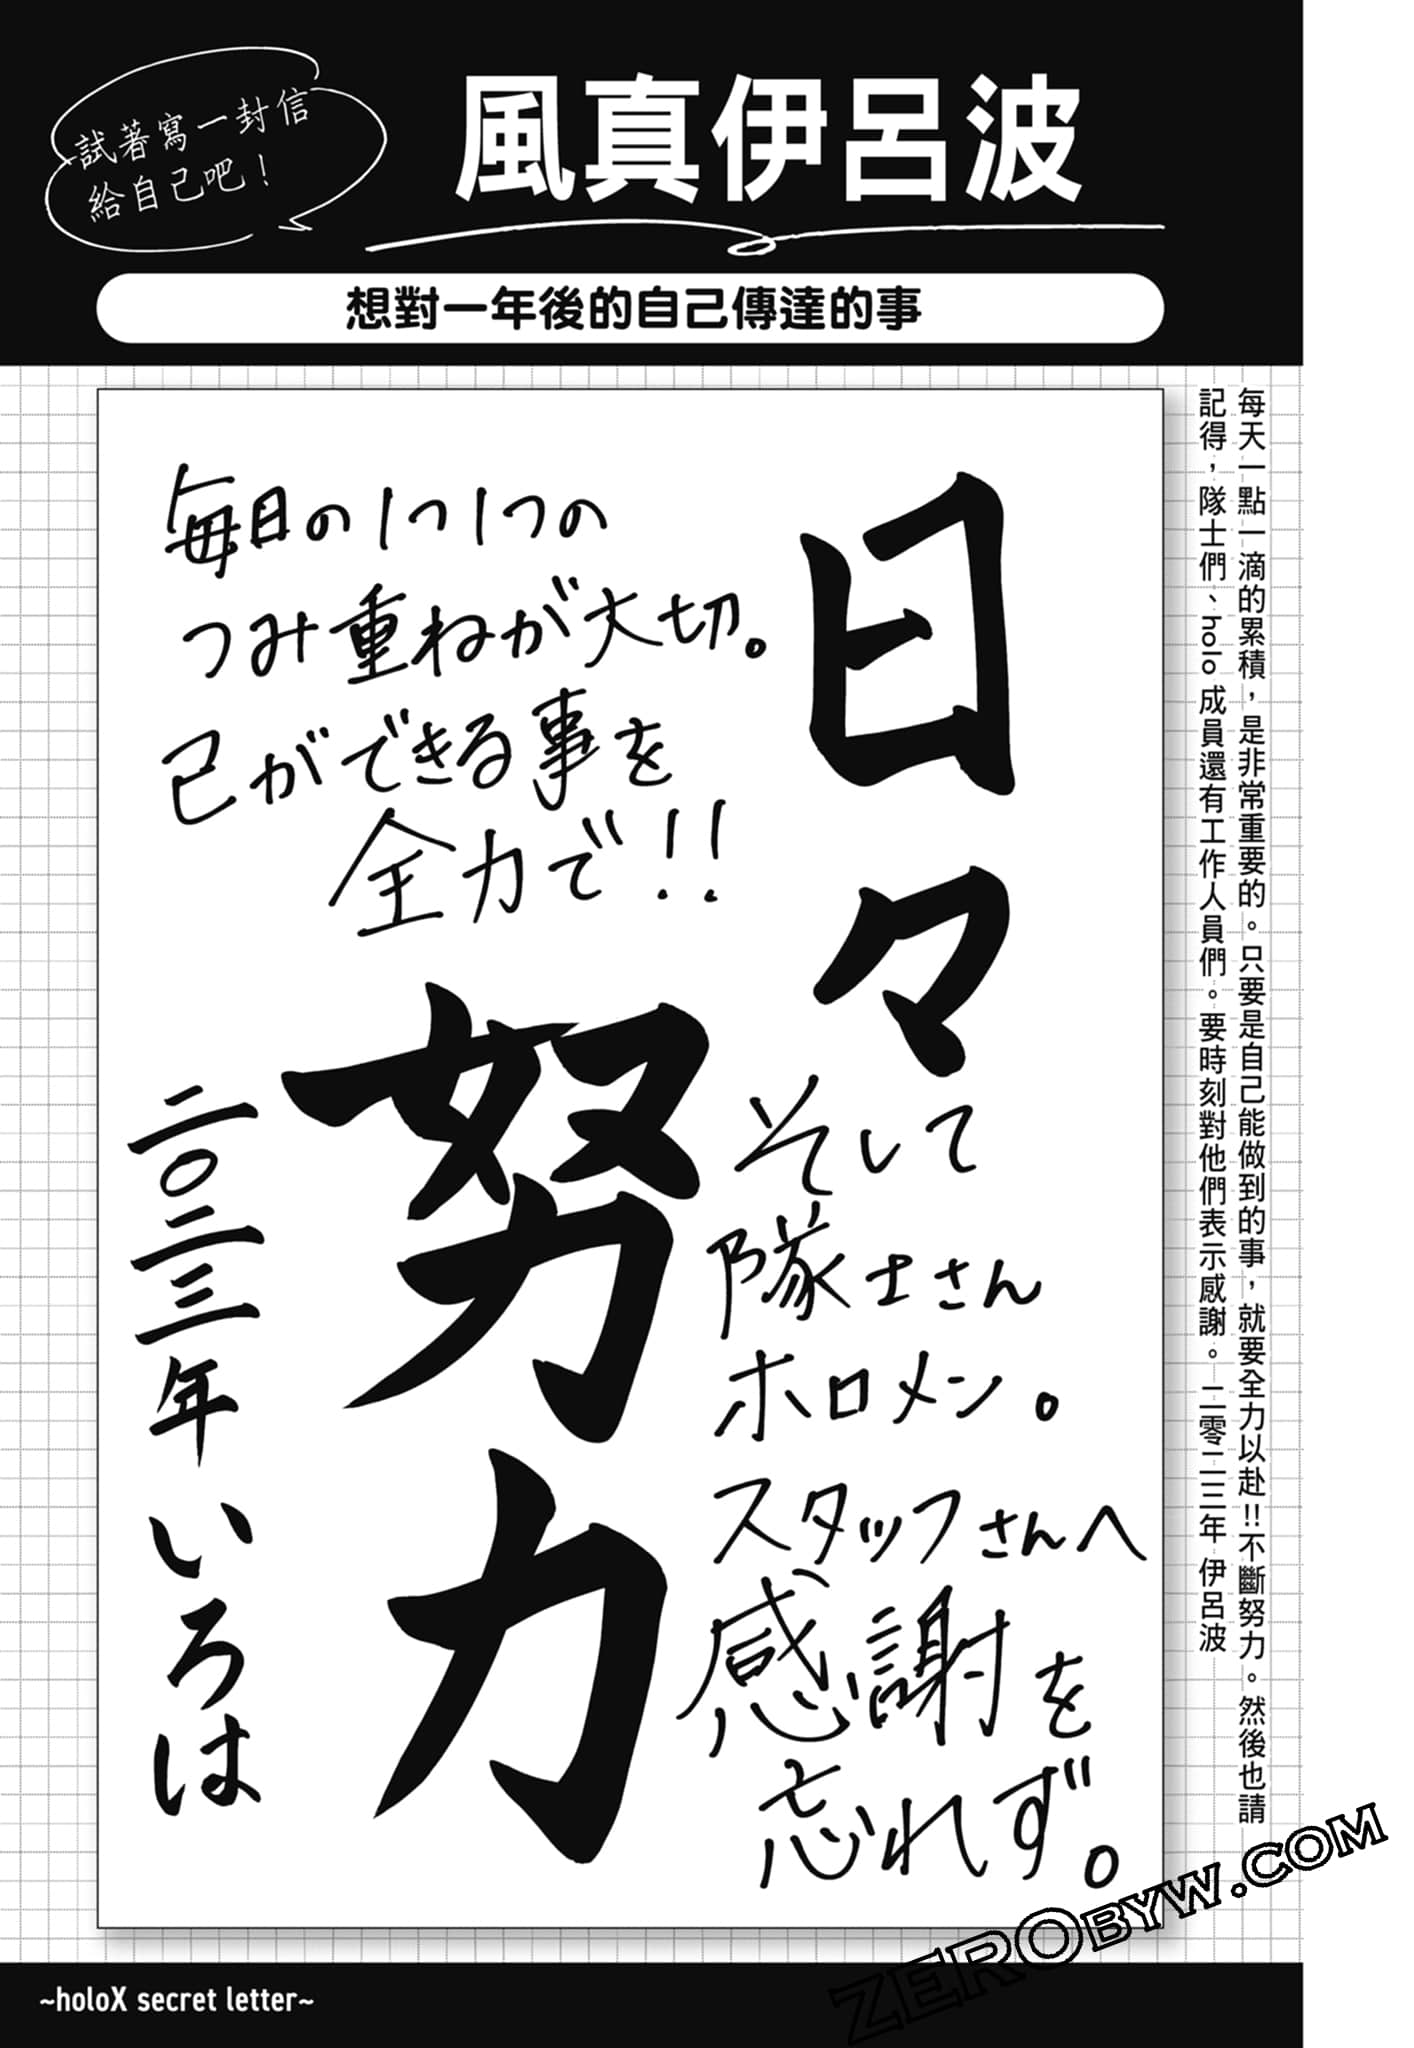 試著寫一封信
給自己吧！
風真伊呂波
想對一年後的自己傳達的事
每天一點一滴的累積，是非常重要的。只要是自己能做到的事，就要全力以赴!!不斷努力。然後也請
記得，隊士們、holo成員還有工作人員們。要時刻對他們表示感謝。二零二三年 伊呂波
日々
努力
毎日の1つ1つの
つみ重ねが大切。
己ができる事を
全力で!!
そして
隊士さん
ホロメン。
スタッフさんへ
感謝を
忘れず。
二〇二三年 いろは
~holoX secret letter~
ZEROBYW.COM